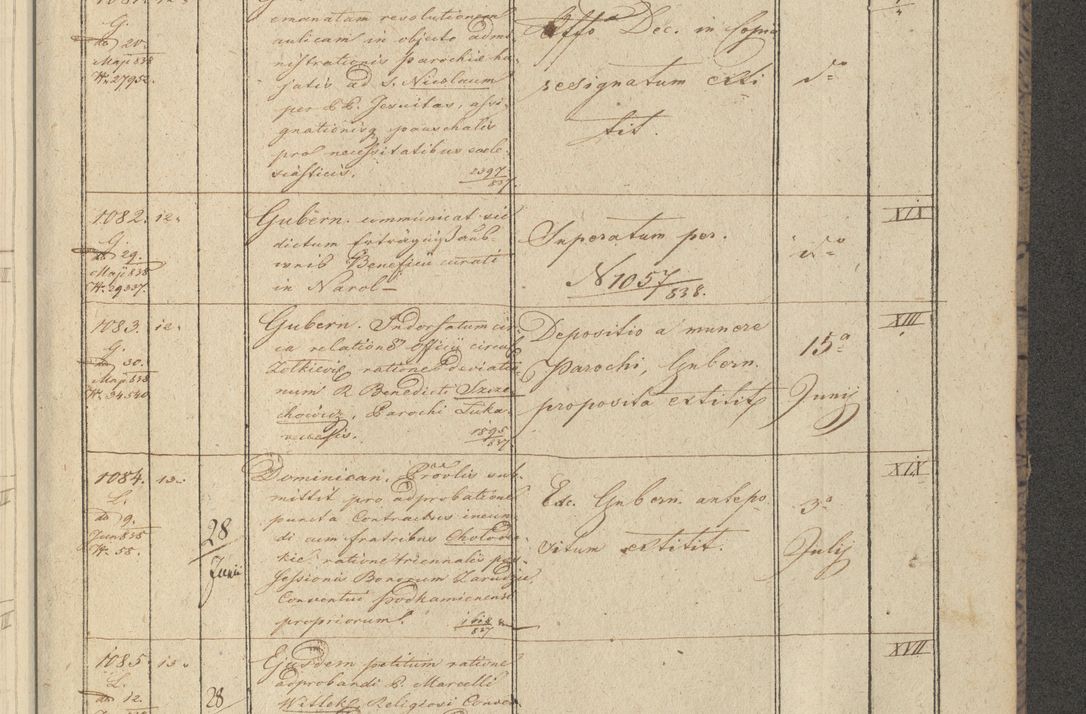 G.
emanatam resolutionem
aulicam in objecto admi
nistrationis parochiae ha-
ad S. Nicolaum
per PP. Jesuitas, assi-
gnationisq pauschalis
pro necessitatibus eccle-
siasticis. 2397/837
do 20.
Maji 838
Nr. 27952.
Dec. in Copia
resignatum exti
tit.
1082. 12.
G.
do 29.
Maji 838
Nr. 29337.
Gubern. communicat
dictum
Beneficii curati
in Narol
Superatum per.
N 1057/838.
XIX
1083. 12.
G.
do 30.
Maji 838
Nr. 34540
Gubern. Indorsatum cir
ca relatione officii circul.
Zolkiew. ratione deviatio
num R Benedicti Szcze-
chowicz, Parochi Luka-
1595/837
Depositio a munere
Parochi, Gubern.
proposita extitit
15a
Junij
XIII
1084. 13.
L.
do 9.
Juni 838
Nr. 58.
28/Junii
Dominican. sub-
mittit pro adprobatione
puncta Contractus ineun
di cum fratribus Cholode-
ratione triennalis pos-
sessionis Bonorum
Conventui Podkamienensi
propriorum.
Exc. Gubern. antepo
situm extitit.
3a
Julij
XIX
1085. 13.
L.
do 12.
28
Ejusdem petitum ratione
adprobandi P. Marcelli
Religiosi Conven
XVII